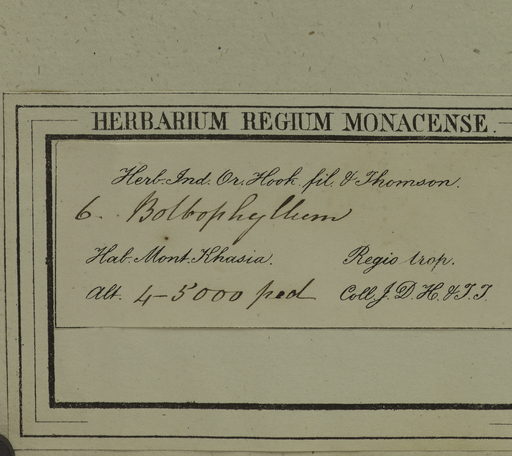 HERBARIUM REGIUM MONACENSE.
Herb. Ind. Or. Hook. fil. & Thomson.
6. Bolbophyllum
Hab. Mont. Khasia. Regio trop.
Alt. 4-5000 ped Coll. J. D. H. & T. T.